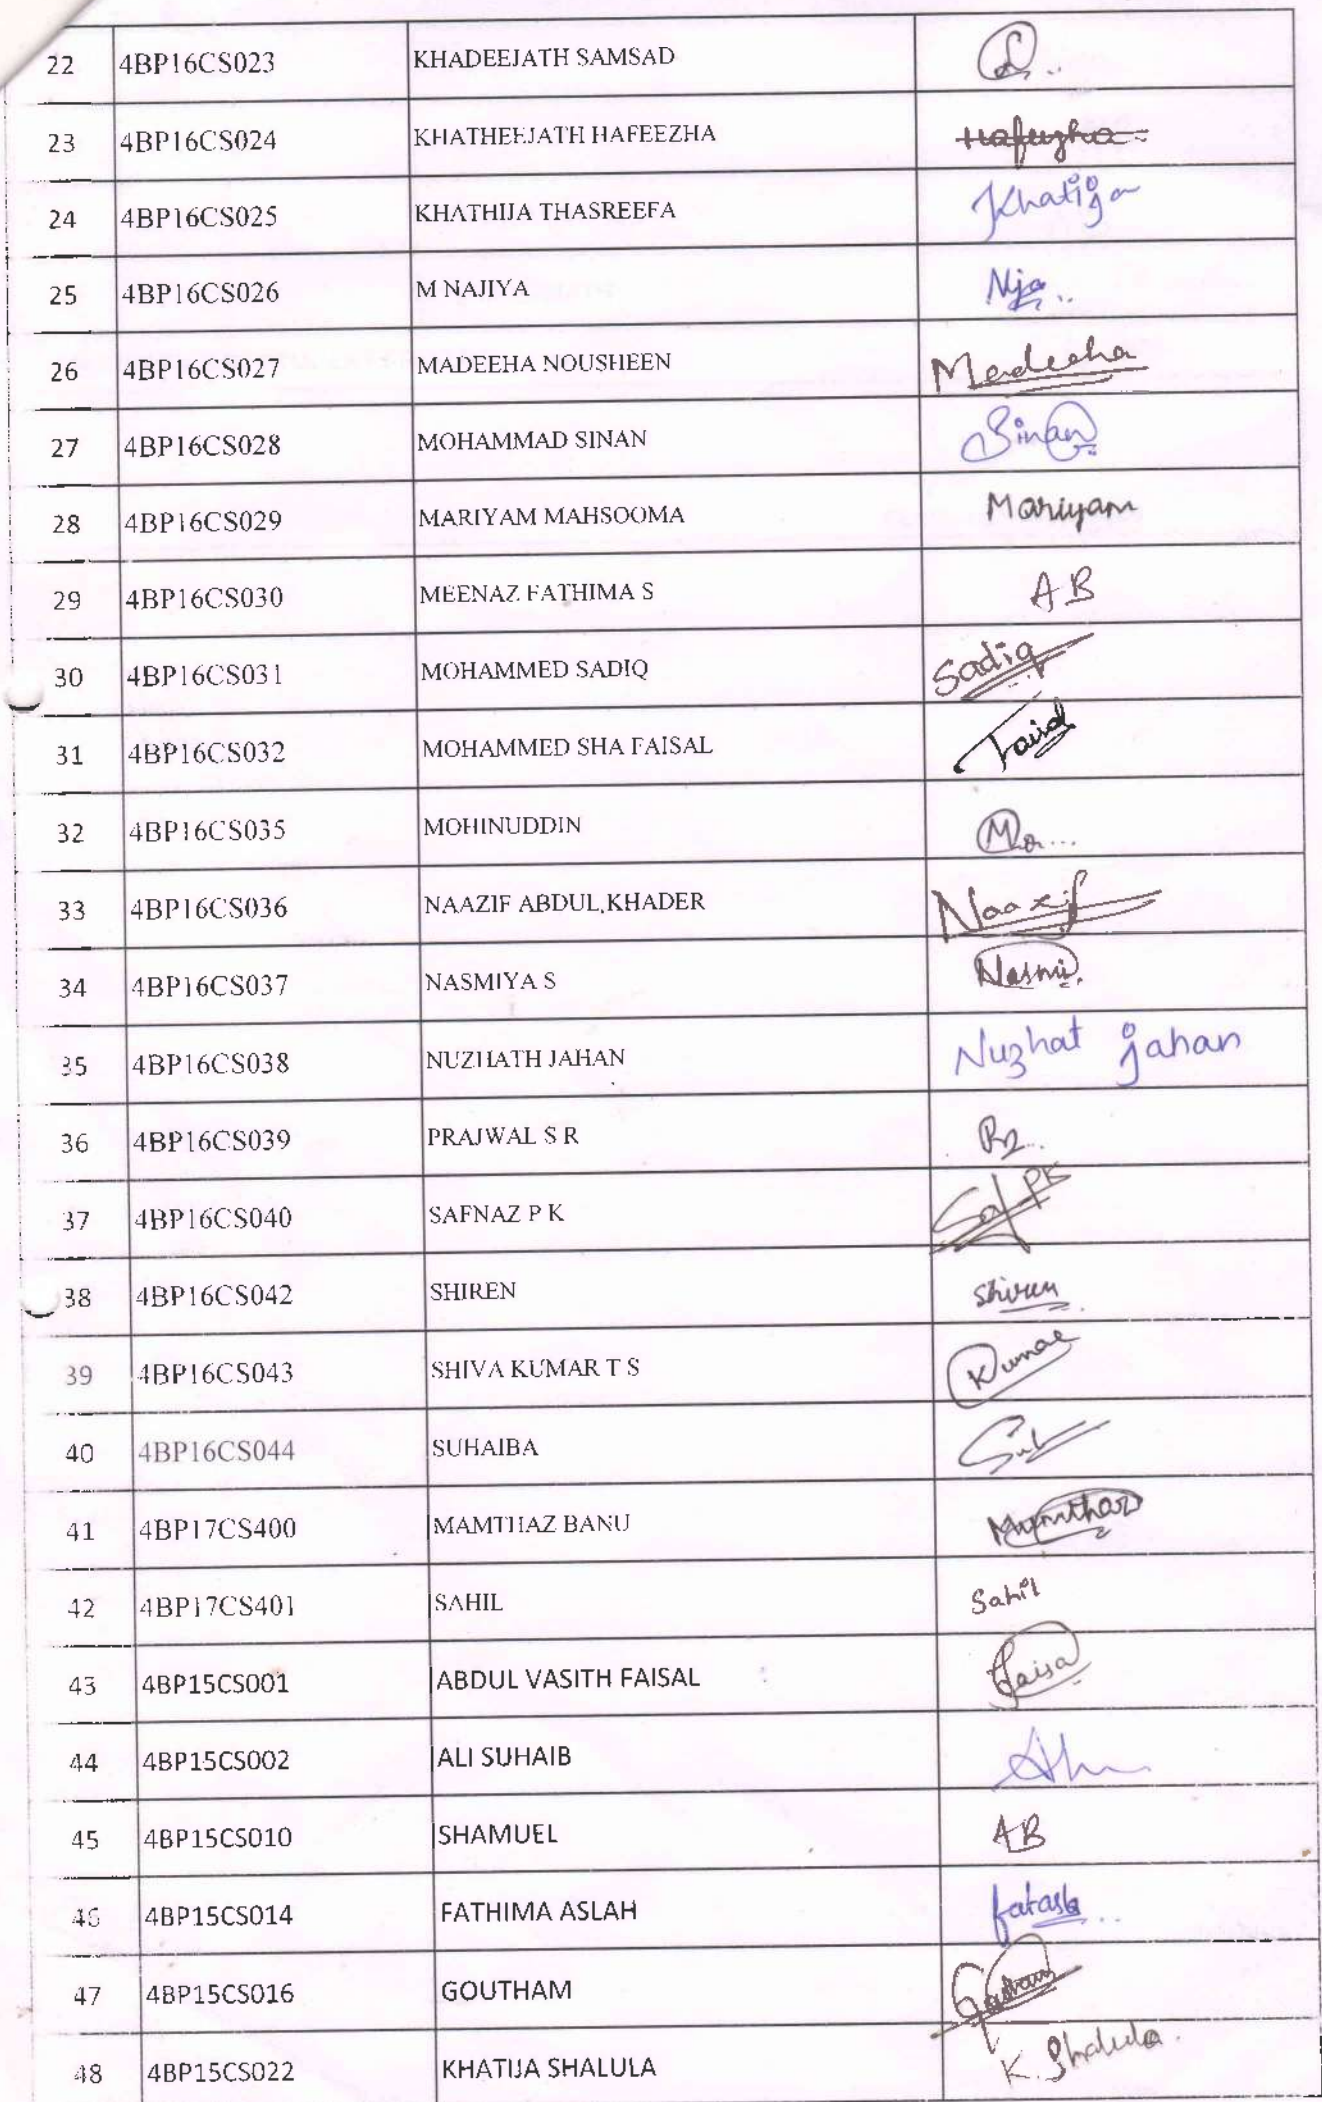 22 4BP16CS023 KHADEEJATH SAMSAD
23 4BP16CS024 KHATHEEJATH HAFEEZHA Hafeezha
24 4BP16CS025 KHATHIJA THASREEFA Khatija
25 4BP16CS026 M NAJIYA Nja
26 4BP16CS027 MADEEHA NOUSHEEN Madeeha
27 4BP16CS028 MOHAMMAD SINAN Sinan
28 4BP16CS029 MARIYAM MAHSOOMA Mariyam
29 4BP16CS030 MEENAZ FATHIMA S AB
30 4BP16CS031 MOHAMMED SADIQ Sadiq
31 4BP16CS032 MOHAMMED SHA FAISAL Faisal
32 4BP16CS035 MOHINUDDIN
33 4BP16CS036 NAAZIF ABDUL KHADER Naazif
34 4BP16CS037 NASMIYA S Nasmi
35 4BP16CS038 NUZHATH JAHAN Nuzhat jahan
36 4BP16CS039 PRAJWAL S R
37 4BP16CS040 SAFNAZ P K Saf PK
38 4BP16CS042 SHIREN Shiren
39 4BP16CS043 SHIVA KUMAR T S Kumar
40 4BP16CS044 SUHAIBA
41 4BP17CS400 MAMTHAZ BANU Mumthaz
42 4BP17CS401 SAHIL Sahil
43 4BP15CS001 ABDUL VASITH FAISAL Faisal
44 4BP15CS002 ALI SUHAIB
45 4BP15CS010 SHAMUEL AB
46 4BP15CS014 FATHIMA ASLAH
47 4BP15CS016 GOUTHAM Goutham
48 4BP15CS022 KHATIJA SHALULA K. Shalula.